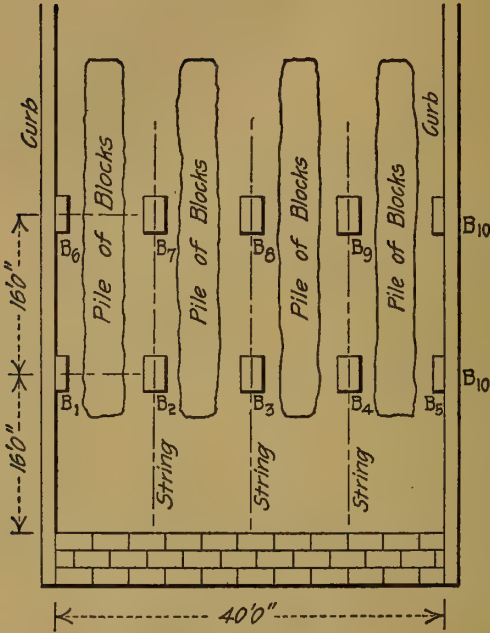 Curb
Pile of Blocks
Pile of Blocks
Pile of Blocks
Pile of Blocks
Curb
B6
B7
B8
B9
B10
16'0"
B1
B2
B3
B4
B5
B10
16'0"
String
String
String
40'0"